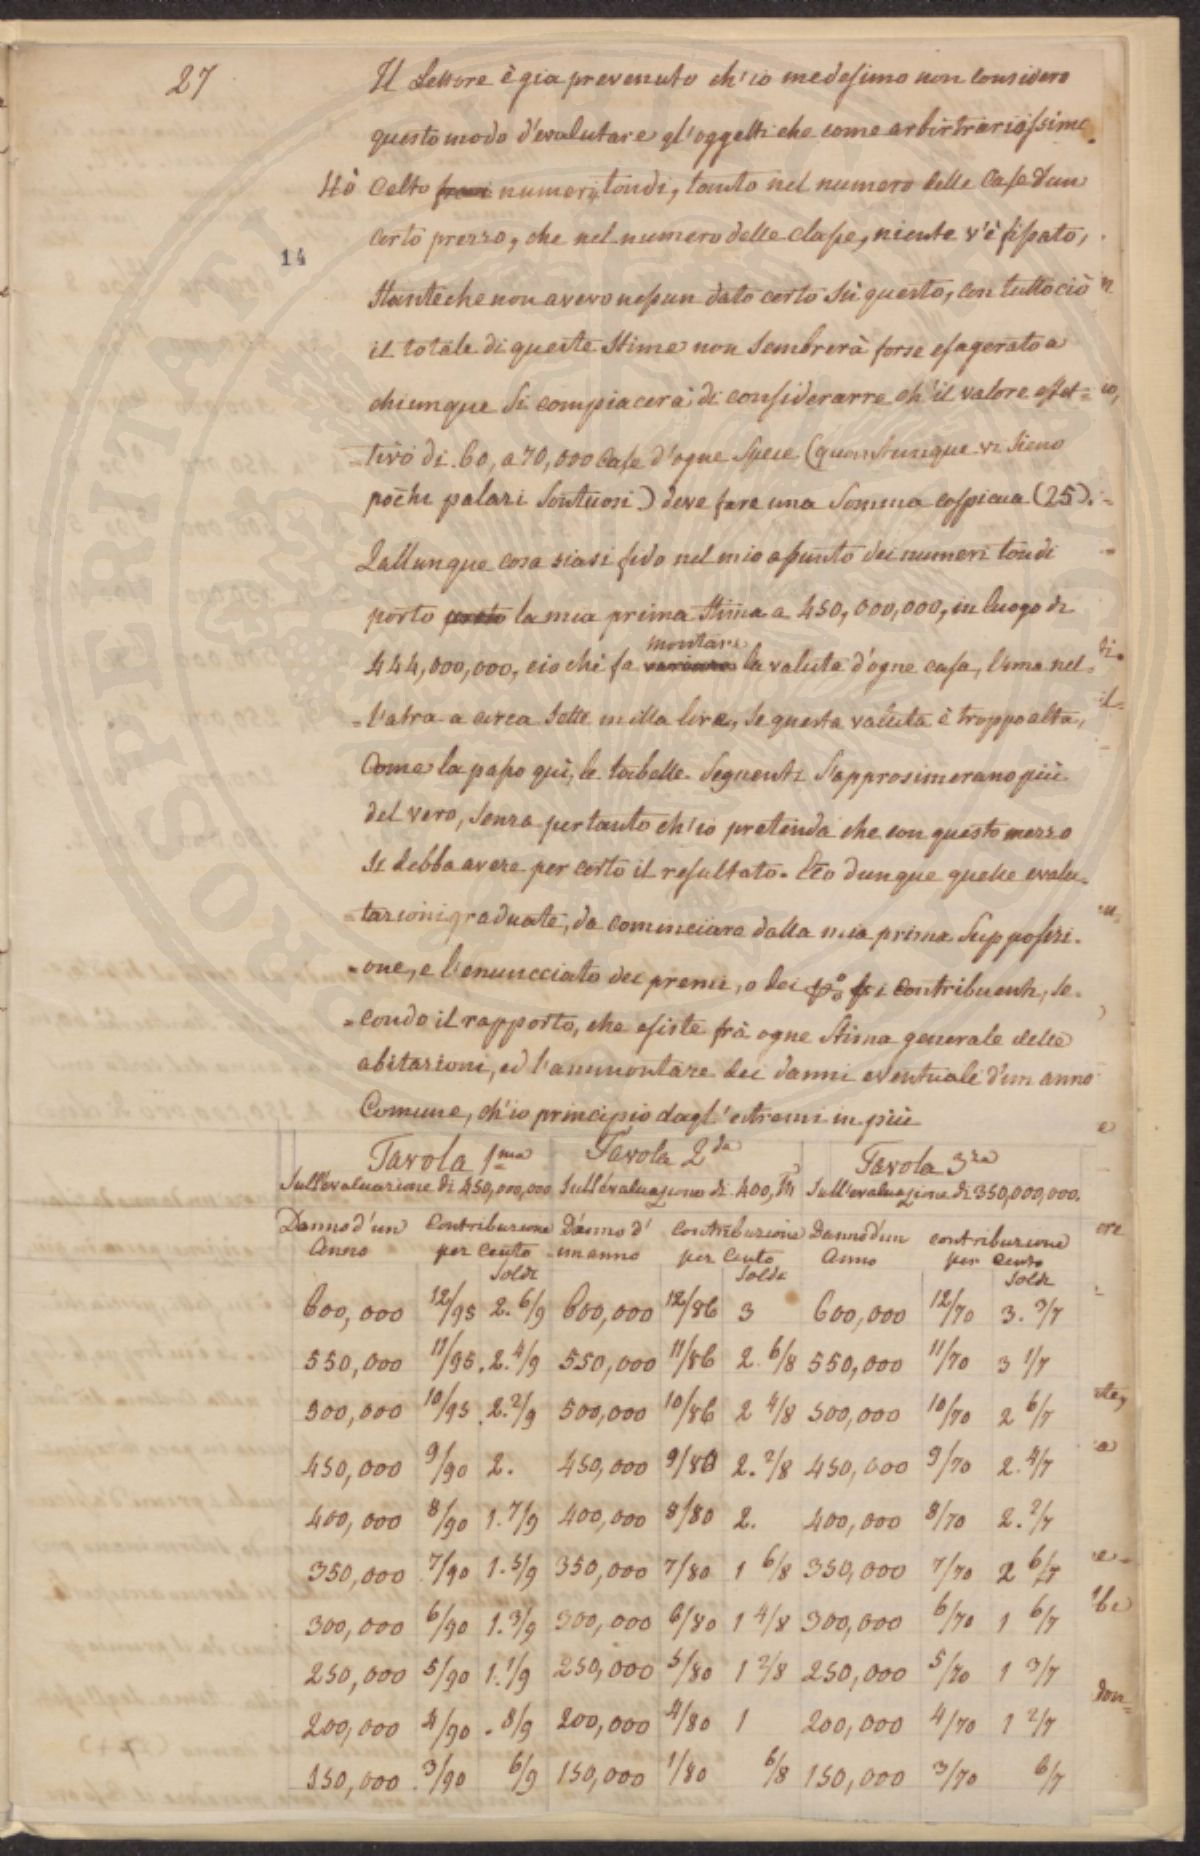 27
Il Lettore è gia prevenuto ch'io medesimo non considero
questo modo d'evalutare gl'oggetti che come arbirtrariossimo.
Hò Celto numeri tondi, tanto nel numero delle Case d'un
certo prezzo, che nel numero delle classe, niente v'è fissato,
14
stanteche non avevo nessun dato certo sù questo, con tutto ciò
il totale di queste stime non sembrerà forse esagerato a
chiunque si compiacerà di considerarre ch'il valore effet=
=tivo di 60, a 70,000 Case d'ogne spece (quantunque vi sieno
pochi palazi sontuosi) deve fare una somma cospicua (25).
Qallunque cosa siasi fido nel mio assunto dei numeri tondi
porto la mia prima stima a 450,000,000, in luogo di
montare
444,000,000, cio chè fa la valuta d'ogne casa, l'una nel=
=l'atra a circa sette milla lire, se questa valuta è troppo alta,
Come la passo quì, le tabelle seguenti s'approsimerano più
del vero, senza pertanto ch'io pretenda che con questo mezzo
si debba avere per certo il resultato. Eco dunque quelle evalu-
=tazioni graduate, da cominciare dalla mia prima supposizi-
=one, e l'enuncciato dei premii, o dei contribuenti, se-
=condo il rapporto, che esiste frà ogne stima generale delle
abitazioni, ed l'ammontare dei danni eventuale d'un anno
Comune, ch'io principio dagl'estremi in più
Tavola 1ma Tavola 2da Tavola 3za
Sull'evaluazione di 450,000,000 Sull'evaluazione di 400,M Sull'evaluazione di 350,000,000.
Danno d'un Contribuzione Danno d' contribuzione Danno d'un contribuzione
Anno per Cento un anno per Cento Anno per Cento
Soldi Soldi Soldi
600,000 12/95 2. 6/9 600,000 12/86 3 600,000 12/70 3. 3/7
550,000 11/95 2. 4/9 550,000 11/86 2. 6/8 550,000 11/70 3 1/7
500,000 10/95 2. 2/9 500,000 10/86 2 4/8 500,000 10/70 2 6/7
450,000 9/90 2. 450,000 9/80 2. 2/8 450,000 9/70 2. 4/7
400,000 8/90 1. 7/9 400,000 8/80 2. 400,000 8/70 2. 2/7
350,000 7/90 1. 5/9 350,000 7/80 1 6/8 350,000 7/70 2 6/7
300,000 6/90 1. 3/9 300,000 6/80 1 4/8 300,000 6/70 1 6/7
250,000 5/90 1. 1/9 250,000 5/80 1 2/8 250,000 5/70 1 3/7
200,000 4/90 . 8/9 200,000 4/80 1 200,000 4/70 1 2/7
150,000 3/90 6/9 150,000 1/80 6/8 150,000 3/70 6/7